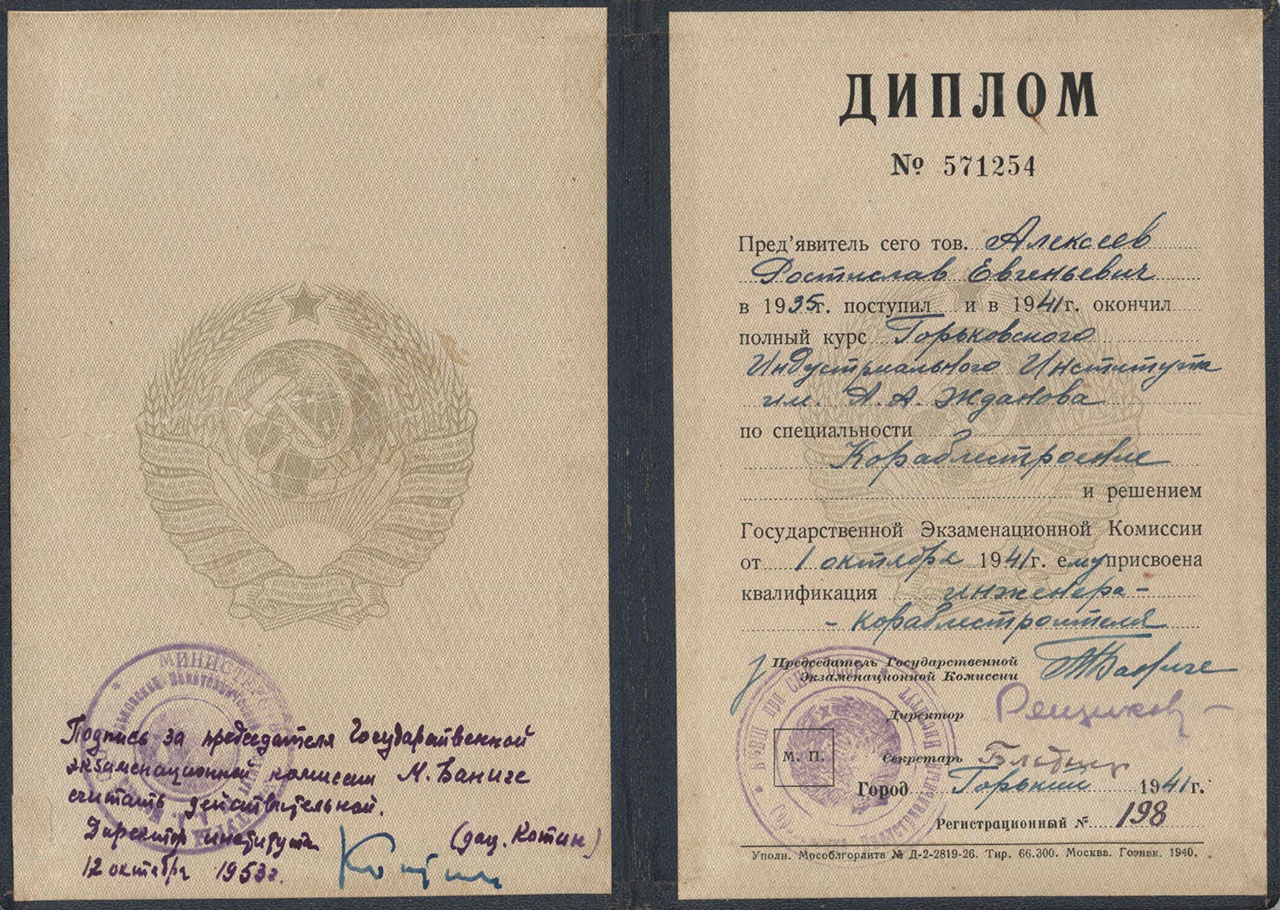 Подпись за председателя Государственной
экзаменационной комиссии М. Ваниге
считать действительной.
Директор института (доц. Котин)
12 октября 1953 г.
Котин
МИНИСТЕРСТВО
ДИПЛОМ
№ 571254
Пред'явитель сего тов. Алексеев
Ростислав Евгеньевич
в 1935г. поступил и в 1941г. окончил
полный курс Горьковского
Индустриального Института
им. А. А. Жданова
по специальности
Кораблестроение
и решением
Государственной Экзаменационной Комиссии
от 1 октября 1941г. ему присвоена
квалификация инженера-
-кораблестроителя
Председатель Государственной
Экзаменационной Комиссии
Директор
М. П.
Секретарь
Город Горький 1941г.
Регистрационный № 198
Уполн. Мособлгорлита № Д-2-2819-26. Тир. 66.300. Москва. Гознак. 1940.